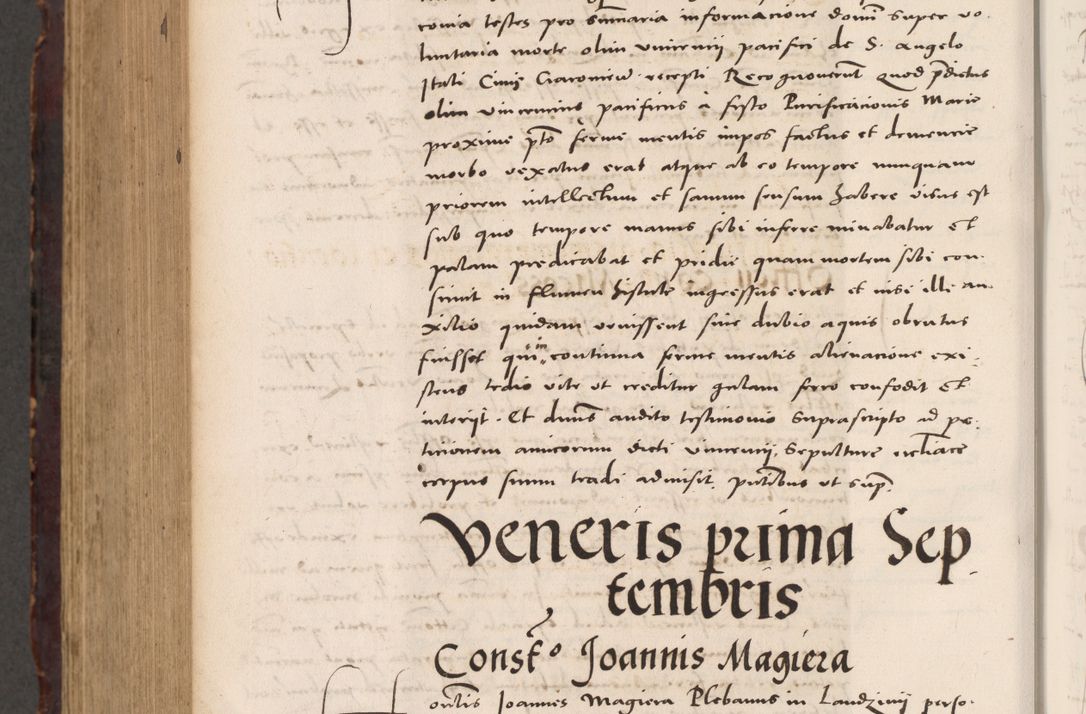 ronia testes pro sumaria informacione domi super vo
luntaria morte olim vincencij pacifici de S. Angelo
Itali Civis Cracovien recepti Recognoverunt quod pdictus
olim vincencius pacificus a festo Purificacionis Marie
proxime pto ferme mentis impos factus et demencie
morbo vexatus erat atque ab eo tempore nunquam
priorem intellectum et sanum sensum habere visus est
sub quo tempore manus sibi inferre minabatur et
palam predicabat et pridie quam mortem sibi con
scivit in flumen histule ingressus erat et nisi illi au
xilio quidam venissent sine dubio aquis obrutus
fuisset qui in continua ferme mentis alienacione exi
stens tedio vite ut creditur gulam ferro confodit et
interijt. Et dnus audito testimonio suprascripto ad pe
ticionem amicorum dicti vincencij sepulture
corpus suum tradi admisit. pntibus ut sup.
Veneris prima Sep
tembris
Const^o Joannis Magiera
Joannes Magiera Plebanus in Landzinij perso